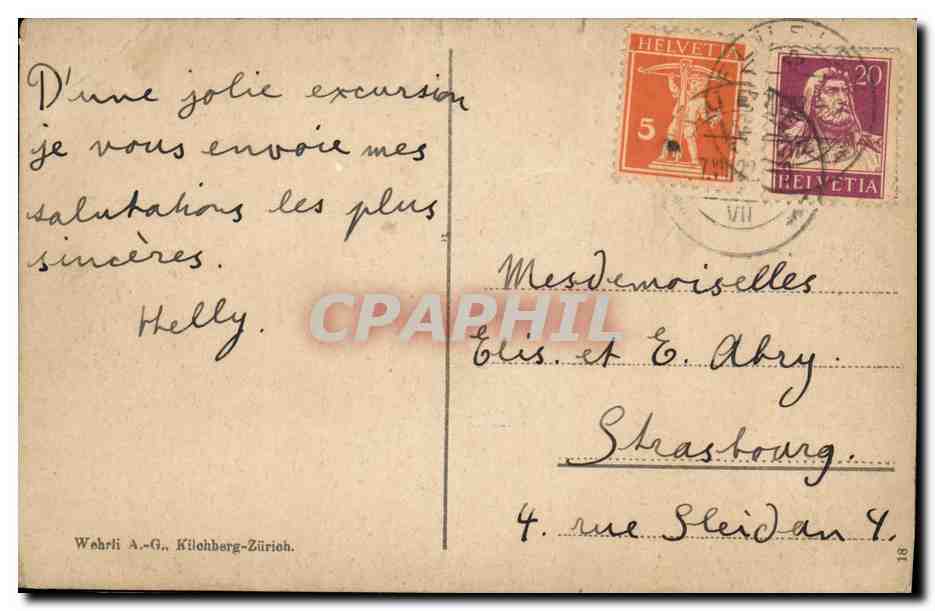 D'une jolie excursion
je vous envoie mes
salutations les plus
sincères.
Helly.
Wehrli A.-G., Kilchberg-Zürich.
HELVETIA
5
20
HELVETIA
VII
Mesdemoiselles
Elis. et E. Abry.
Strasbourg.
4. rue Sleidan 4.
18
CPAPHIL